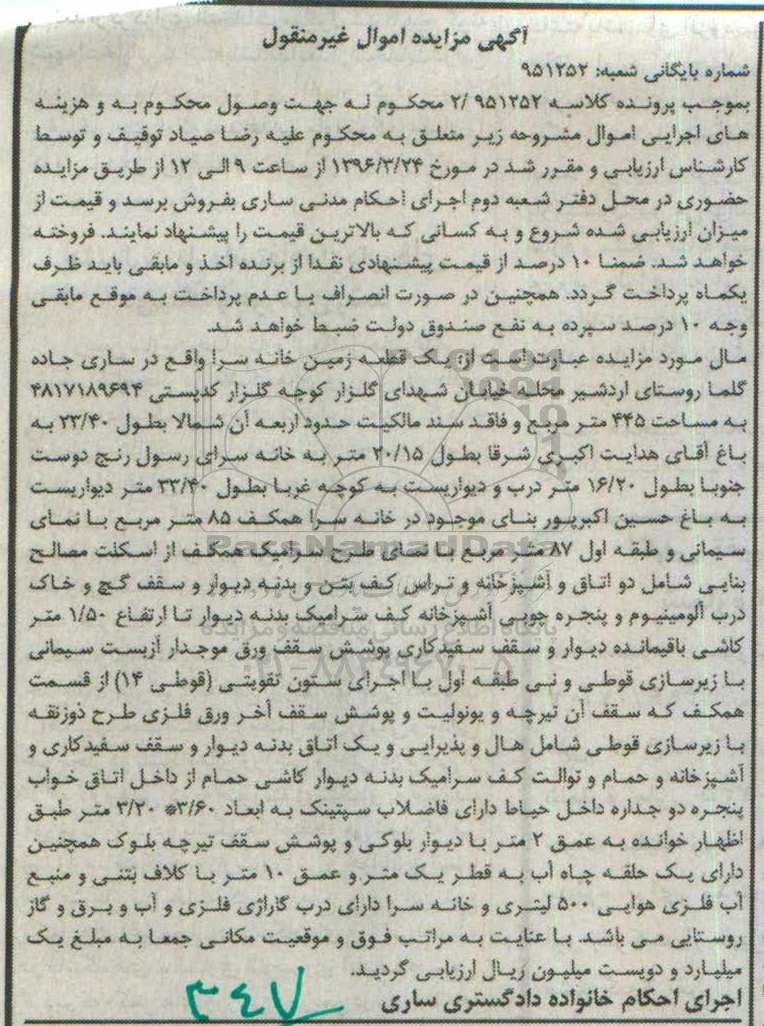 آگهی مزایده اموال غیرمنقول
شماره بایگانی شعبه: ۹۵۱۲۵۲
بموجب پرونده کلاسه ۹۵۱۲۵۲ /۲ محکوم له جهت وصول محکوم به و هزینه
های اجرایی اموال مشروحه زیر متعلق به محکوم علیه رضا صیاد توقیف و توسط
کارشناس ارزیابی و مقرر شد در مورخ ۱۳۹۶/۳/۲۴ از ساعت ۹ الی ۱۲ از طریق مزایده
حضوری در محل دفتر شعبه دوم اجرای احکام مدنی ساری بفروش برسد و قیمت از
میزان ارزیابی شده شروع و به کسانی که بالاترین قیمت را پیشنهاد نمایند. فروخته
خواهد شد. ضمنا ۱۰ درصد از قیمت پیشنهادی نقدا از برنده اخذ و مابقی باید ظرف
یکماه پرداخت گردد. همچنین در صورت انصراف یا عدم پرداخت به موقع مابقی
وجه ۱۰ درصد سپرده به نفع صندوق دولت ضبط خواهد شد.
مال مورد مزایده عبارت است از: یک قطعه زمین خانه سرا واقع در ساری جاده
گلما روستای اردشیر محله خیابان شهدای گلزار کوچه گلزار کدپستی ۴۸۱۷۱۸۹۶۹۴
به مساحت ۴۴۵ متر مربع و فاقد سند مالکیت حدود اربعه آن شمالا بطول ۲۳/۴۰ به
باغ آقای هدایت اکبری شرقا بطول ۲۰/۱۵ متر به خانه سرای رسول رنج دوست
جنوبا بطول ۱۶/۲۰ متر درب و دیواریست به کوچه غربا بطول ۲۳/۴۰ متر دیواریست
به باغ حسین اکبرپور بنای موجود در خانه سرا همکف ۸۵ متر مربع با نمای
سیمانی و طبقه اول ۸۷ متر مربع با نمای طرح سرامیک همکف از اسکلت مصالح
بنایی شامل دو اتاق و آشپزخانه و تراس کف بتن و بدنه دیوار و سقف گچ و خاک
درب آلومینیوم و پنجره چوبی آشپزخانه کف سرامیک بدنه دیوار تا ارتفاع ۱/۵۰ متر
کاشی باقیمانده دیوار و سقف سفیدکاری پوشش سقف ورق موجدار آزبست سیمانی
با زیرسازی قوطی و نبی طبقه اول با اجرای ستون تقویتی (قوطی ۱۴) از قسمت
همکف که سقف آن تیرچه و یونولیت و پوشش سقف آخر ورق فلزی طرح ذوزنقه
با زیرسازی قوطی شامل هال و پذیرایی و یک اتاق بدنه دیوار و سقف سفیدکاری و
آشپزخانه و حمام و توالت کف سرامیک بدنه دیوار کاشی حمام از داخل اتاق خواب
پنجره دو جداره داخل حیاط دارای فاضلاب سپتینک به ابعاد ۳/۶۰* ۳/۲۰ متر طبق
اظهار خوانده به عمق ۲ متر با دیوار بلوکی و پوشش سقف تیرچه بلوک همچنین
دارای یک حلقه چاه آب به قطر یک متر و عمق ۱۰ متر با کلاف بتنی و منبع
آب فلزی هوایی ۵۰۰ لیتری و خانه سرا دارای درب گاراژی فلزی و آب و برق و گاز
روستایی می باشد. با عنایت به مراتب فوق و موقعیت مکانی جمعا به مبلغ یک
میلیارد و دویست میلیون ریال ارزیابی گردید.
اجرای احکام خانواده دادگستری ساری ۳۴۷
ParsNamadData